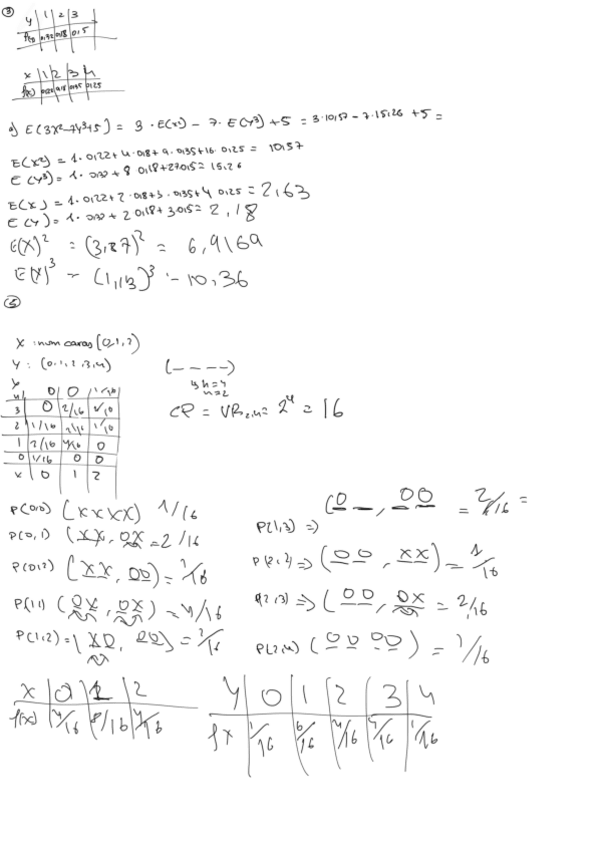 ③
y | 1 | 2 | 3
f(y) 0,32 0,18 0,5
x | 1 | 2 | 3 | 4
f(x) 0,22 0,18 0,35 0,25
a) E(3x²-7y³+5) = 3 · E(x²) - 7 · E(y³) + 5 = 3·10,57 - 7·15,26 + 5 =
E(x²) = 1·0,22 + 4·0,18 + 9·0,35 + 16·0,25 = 10,57
E(y³) = 1· 0,32 + 8 0,18 + 27 0,5 = 15,26
E(x) = 1·0,22 + 2·0,18 + 3·0,35 + 4 0,25 = 2,63
E(y) = 1· 0,32 + 2 0,18 + 3 0,5 = 2,18
E(X)² = (3,87)² = 6,9169
E(x)³ - (1,13)³ - 10,36
⑤
X : num caras (0,1,2)
Y : (0,1,2,3,4)
(– – – –)
n=2
CP = VR2,4 = 2⁴ = 16
y
4 | 0 | 0 | 1/16
3 | 0 | 2/16 | 2/16
2 | 1/16 | 2/16 | 1/16
1 | 2/16 | 4/16 | 0
0 | 1/16 | 0 | 0
x | 0 | 1 | 2
P(0,0) (XXXX) 1/16
P(0,1) (XX, OX = 2/16
P(0,2) (XX, OO) = 1/16
P(1,1) (OX, OX) = 4/16
P(1,2) = (XO, OO) = 2/16
P(1,3) => (O –, OO = 2/16 =
P(2,2) => (OO, XX) = 1/16
P(2,3) => (OO, OX = 2/16
P(2,4) (OO OO) = 1/16
x | 0 | 1 | 2
f(x) | 4/16 | 8/16 | 4/16
Y | 0 | 1 | 2 | 3 | 4
fx | 1/16 | 6/16 | 4/16 | 4/16 | 1/16